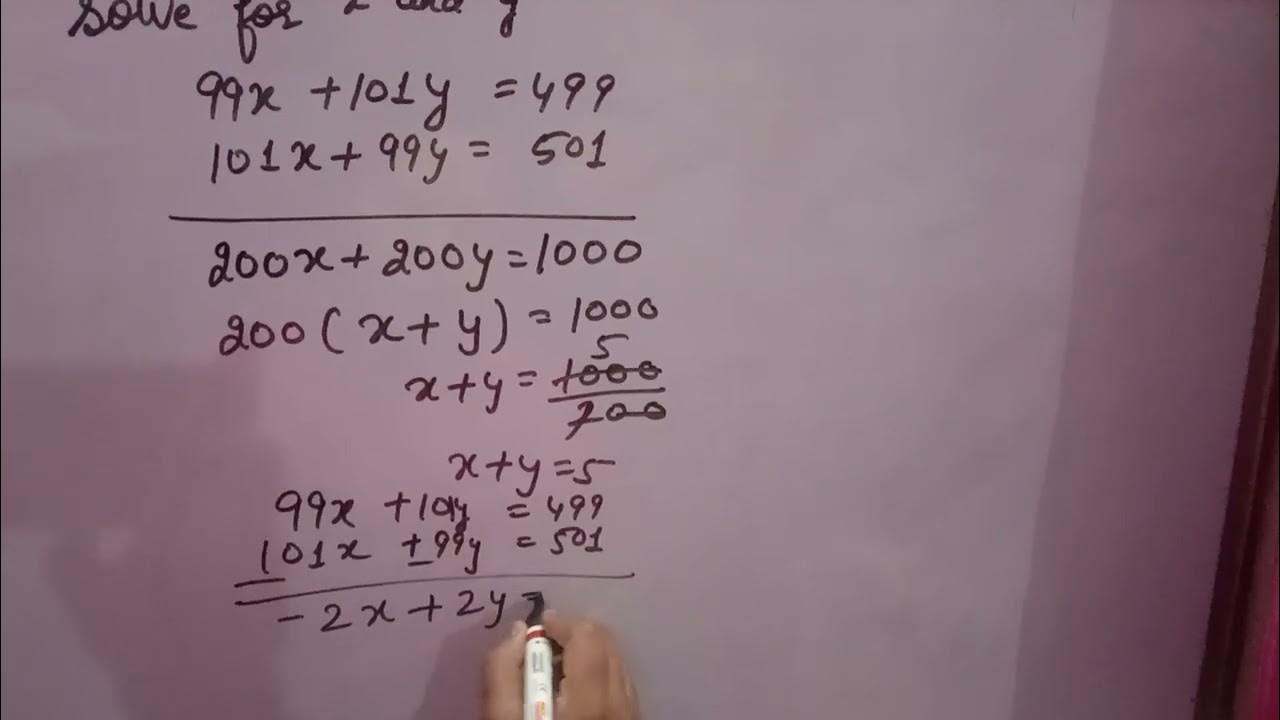 Solve for x and y
99x + 101y = 499
101x + 99y = 501
200x + 200y = 1000
200 ( x + y ) = 1000
5
x + y = 1000
200
x + y = 5
99x + 101y = 499
101x ± 99y = 501
- 2x + 2y =